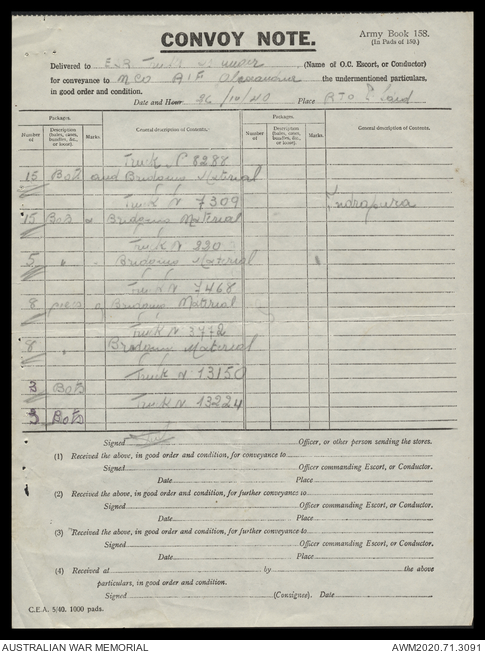 CONVOY NOTE.
Army Book 158.
(In Pads of 150.)
Delivered to E.S.R. (Name of O.C. Escort, or Conductor)
for conveyance to M C O A I F Alexandria the undermentioned particulars,
in good order and condition.
Date and Hour 26/10/40 Place R T O
Packages. Packages.
Number of Description (bales, cases, bundles, &c., or loose). Marks. General description of Contents. Number of Description (bales, cases, bundles, &c., or loose). Marks. General description of Contents.
Truck No 8288
15 Bots and Bridging Material
Truck N 7309 Indrapura
15 Bots Bridging Material
Truck N 220
5 " Bridging Material
Truck N 7468
8 pces of Bridging Material
Truck N 3772
8 " Bridging Material
Truck N 13150
3 Bots
Truck N. 13224
3 Bots
Signed Officer, or other person sending the stores.
(1) Received the above, in good order and condition, for conveyance to
Signed Officer commanding Escort, or Conductor.
Date Place
(2) Received the above, in good order and condition, for further conveyance to
Signed Officer commanding Escort, or Conductor.
Date Place
(3) Received the above, in good order and condition, for further conveyance to
Signed Officer commanding Escort, or Conductor.
Date Place
(4) Received at by the above
particulars, in good order and condition.
Signed (Consignee). Date
C.E.A. 5/40. 1000 pads.
AUSTRALIAN WAR MEMORIAL AWM2020.71.3091